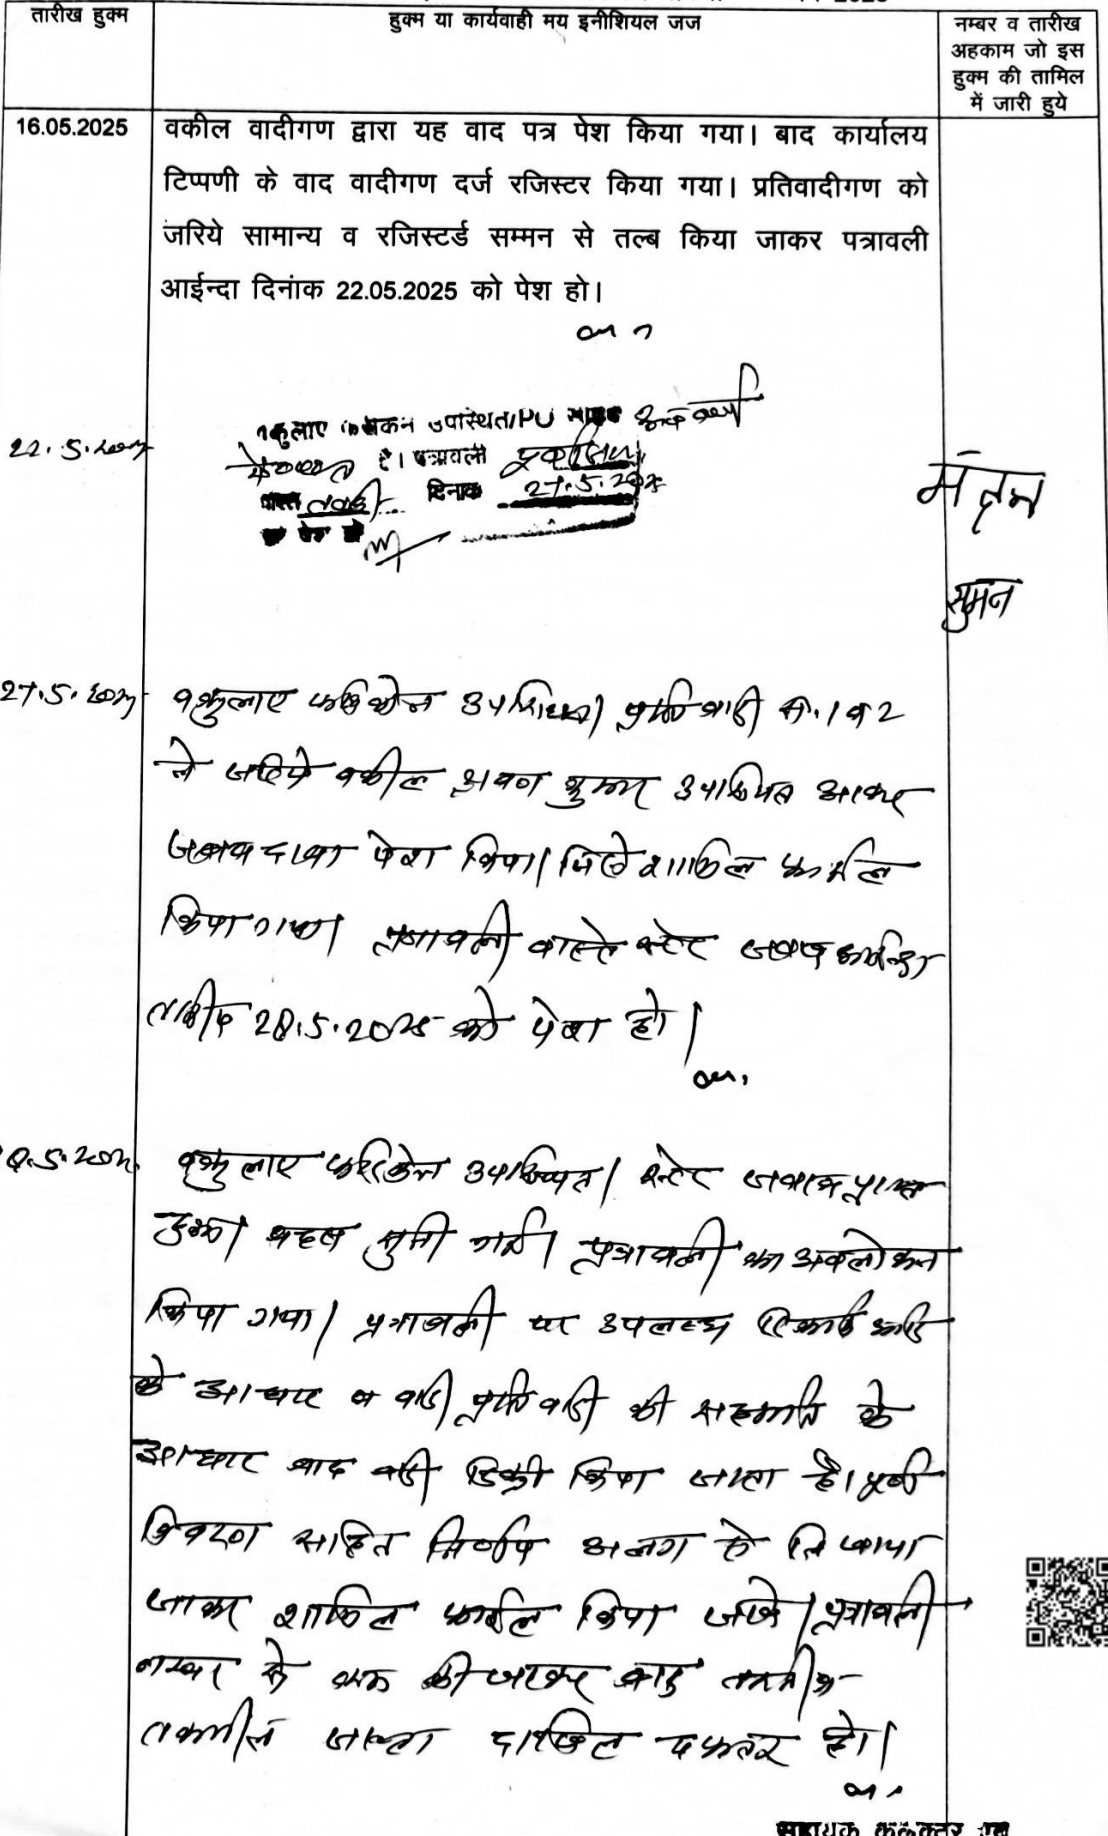 तारीख हुक्म
हुक्म या कार्यवाही मय इनीशियल जज
नम्बर व तारीख
अहकाम जो इस
हुक्म की तामिल
में जारी हुये
16.05.2025
वकील वादीगण द्वारा यह वाद पत्र पेश किया गया। बाद कार्यालय
टिप्पणी के वाद वादीगण दर्ज रजिस्टर किया गया। प्रतिवादीगण को
जरिये सामान्य व रजिस्टर्ड सम्मन से तल्ब किया जाकर पत्रावली
आईन्दा दिनांक 22.05.2025 को पेश हो।
22.5.2025
उपस्थित/PO
है। पत्रावली
दिनांक 27.5.2025
पेश हो
सुमन
27.5.2025
वकुलाए फरिकेन उपस्थित। प्रतिवादी सं. 1 व 2
ने जरिये वकील श्रवण कुमार उपस्थित आकर
जबाव दावा पेश किया। जिसे शामिल फाईल
किया गया। पत्रावली वास्ते स्टेट जबाव
तारीख 28.5.2025 को पेश हो।
.5.2025
वकुलाए फरिकेन उपस्थित। स्टेट जबाव प्राप्त
हुआ। बहस सुनी गई। पत्रावली का अवलोकन
किया गया। पत्रावली पर उपलब्ध रिकार्ड आदि
के आधार व वादी प्रतिवादी की सहमति के
आधार वाद वादी डिक्री किया जाता है। पूर्ण
विवरण सहित निर्णय अलग से लिखाया
जाकर शामिल फाईल किया जावे। पत्रावली
नम्बर से कम की जाकर बाद
तकमील जाप्ता दाखिल दफ्तर हो।
सहायक कलक्टर एवं